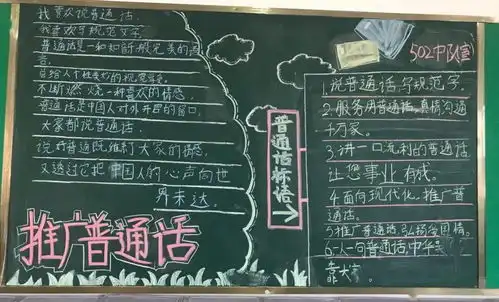 我喜欢说普通话.
我喜欢写规范文字.
普通话是一种和谐般完美的语
言.
不断燃烧一种喜欢的情感.
普通话是中国人对外开启的窗口,
大家都说普通话.
说好普通话维系了大家的情感,
又透过它把中国人的心声向世
界表达.
推广普通话
普通话标语
502中队宣
1.说普通话,写规范字.
2.服务用普通话,真情沟通
千万家.
3.讲一口流利的普通话
让您事业有成。
4.面向现代化,推广普
通话。
5.推广普通话,弘扬爱国情。
6.一人一句普通话,中华
靠大家。